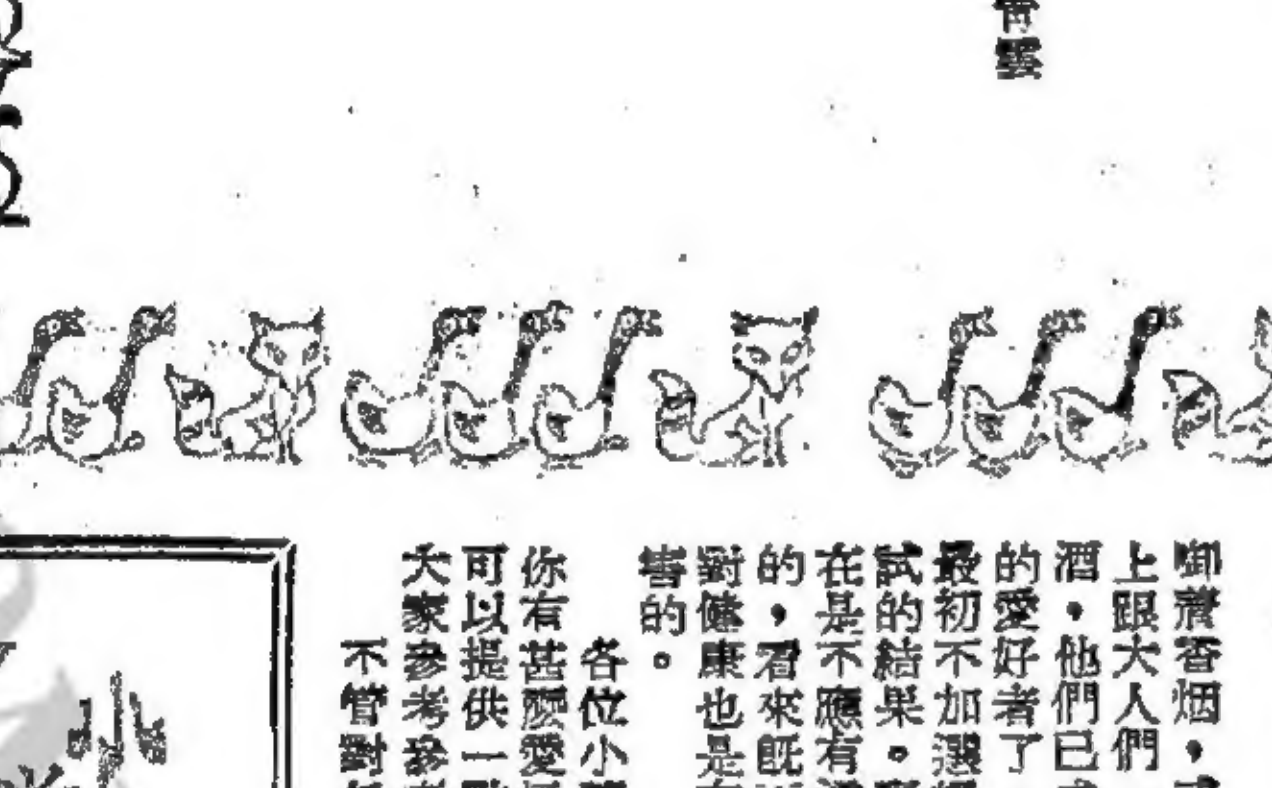 青雲
啣着香烟，或
上跟大人們
酒，他們已
的愛好者了
最初不加選
試的結果。
在是不應有
的，看來既
對健康也是有
害的。
各位小
你有甚麼愛
可以提供一點
大家參考參考
不管對